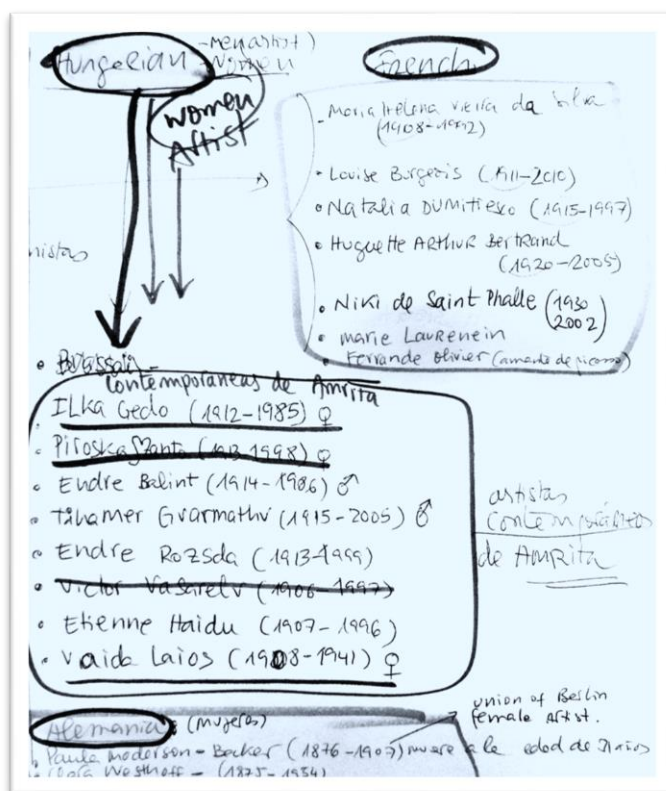 Hungarian
- Men artist)
- Women
Women
Artist
French
- Maria Helena vieira da Silva
(1908-1992)
• Louise Burgeois (1911-2010)
• Natalia DUMitresco (1915-1997)
• Huguette ARTHUR Bertrand
(1920-2005)
• Niki de Saint Phalle (1930
2002)
• marie Laurencin
• Fernande Olivier (amante de picasso)
nistas
• Brassaï -
Contemporaneas de Amrita
• ILKa Gedo (1912-1985) ♀
• Piroska Szanto (1913-1998) ♀
• Endre Balint (1914-1986) ♂
• Tihamer Gyarmathy (1915-2005) ♂
• Endre Rozsda (1913-1999)
• Victor Vasarely (1906-1997)
• Etienne Haidu (1907-1996)
• Vaida Laios (1908-1941) ♀
artistas
contemporáneos
de AMRITA
Alemania: (mujeres)
union of Berlin
female Artist.
• Paula Moderson-Becker (1876-1907) muere a la edad de 31 años
• Clara Westhoff - (1875-1954)